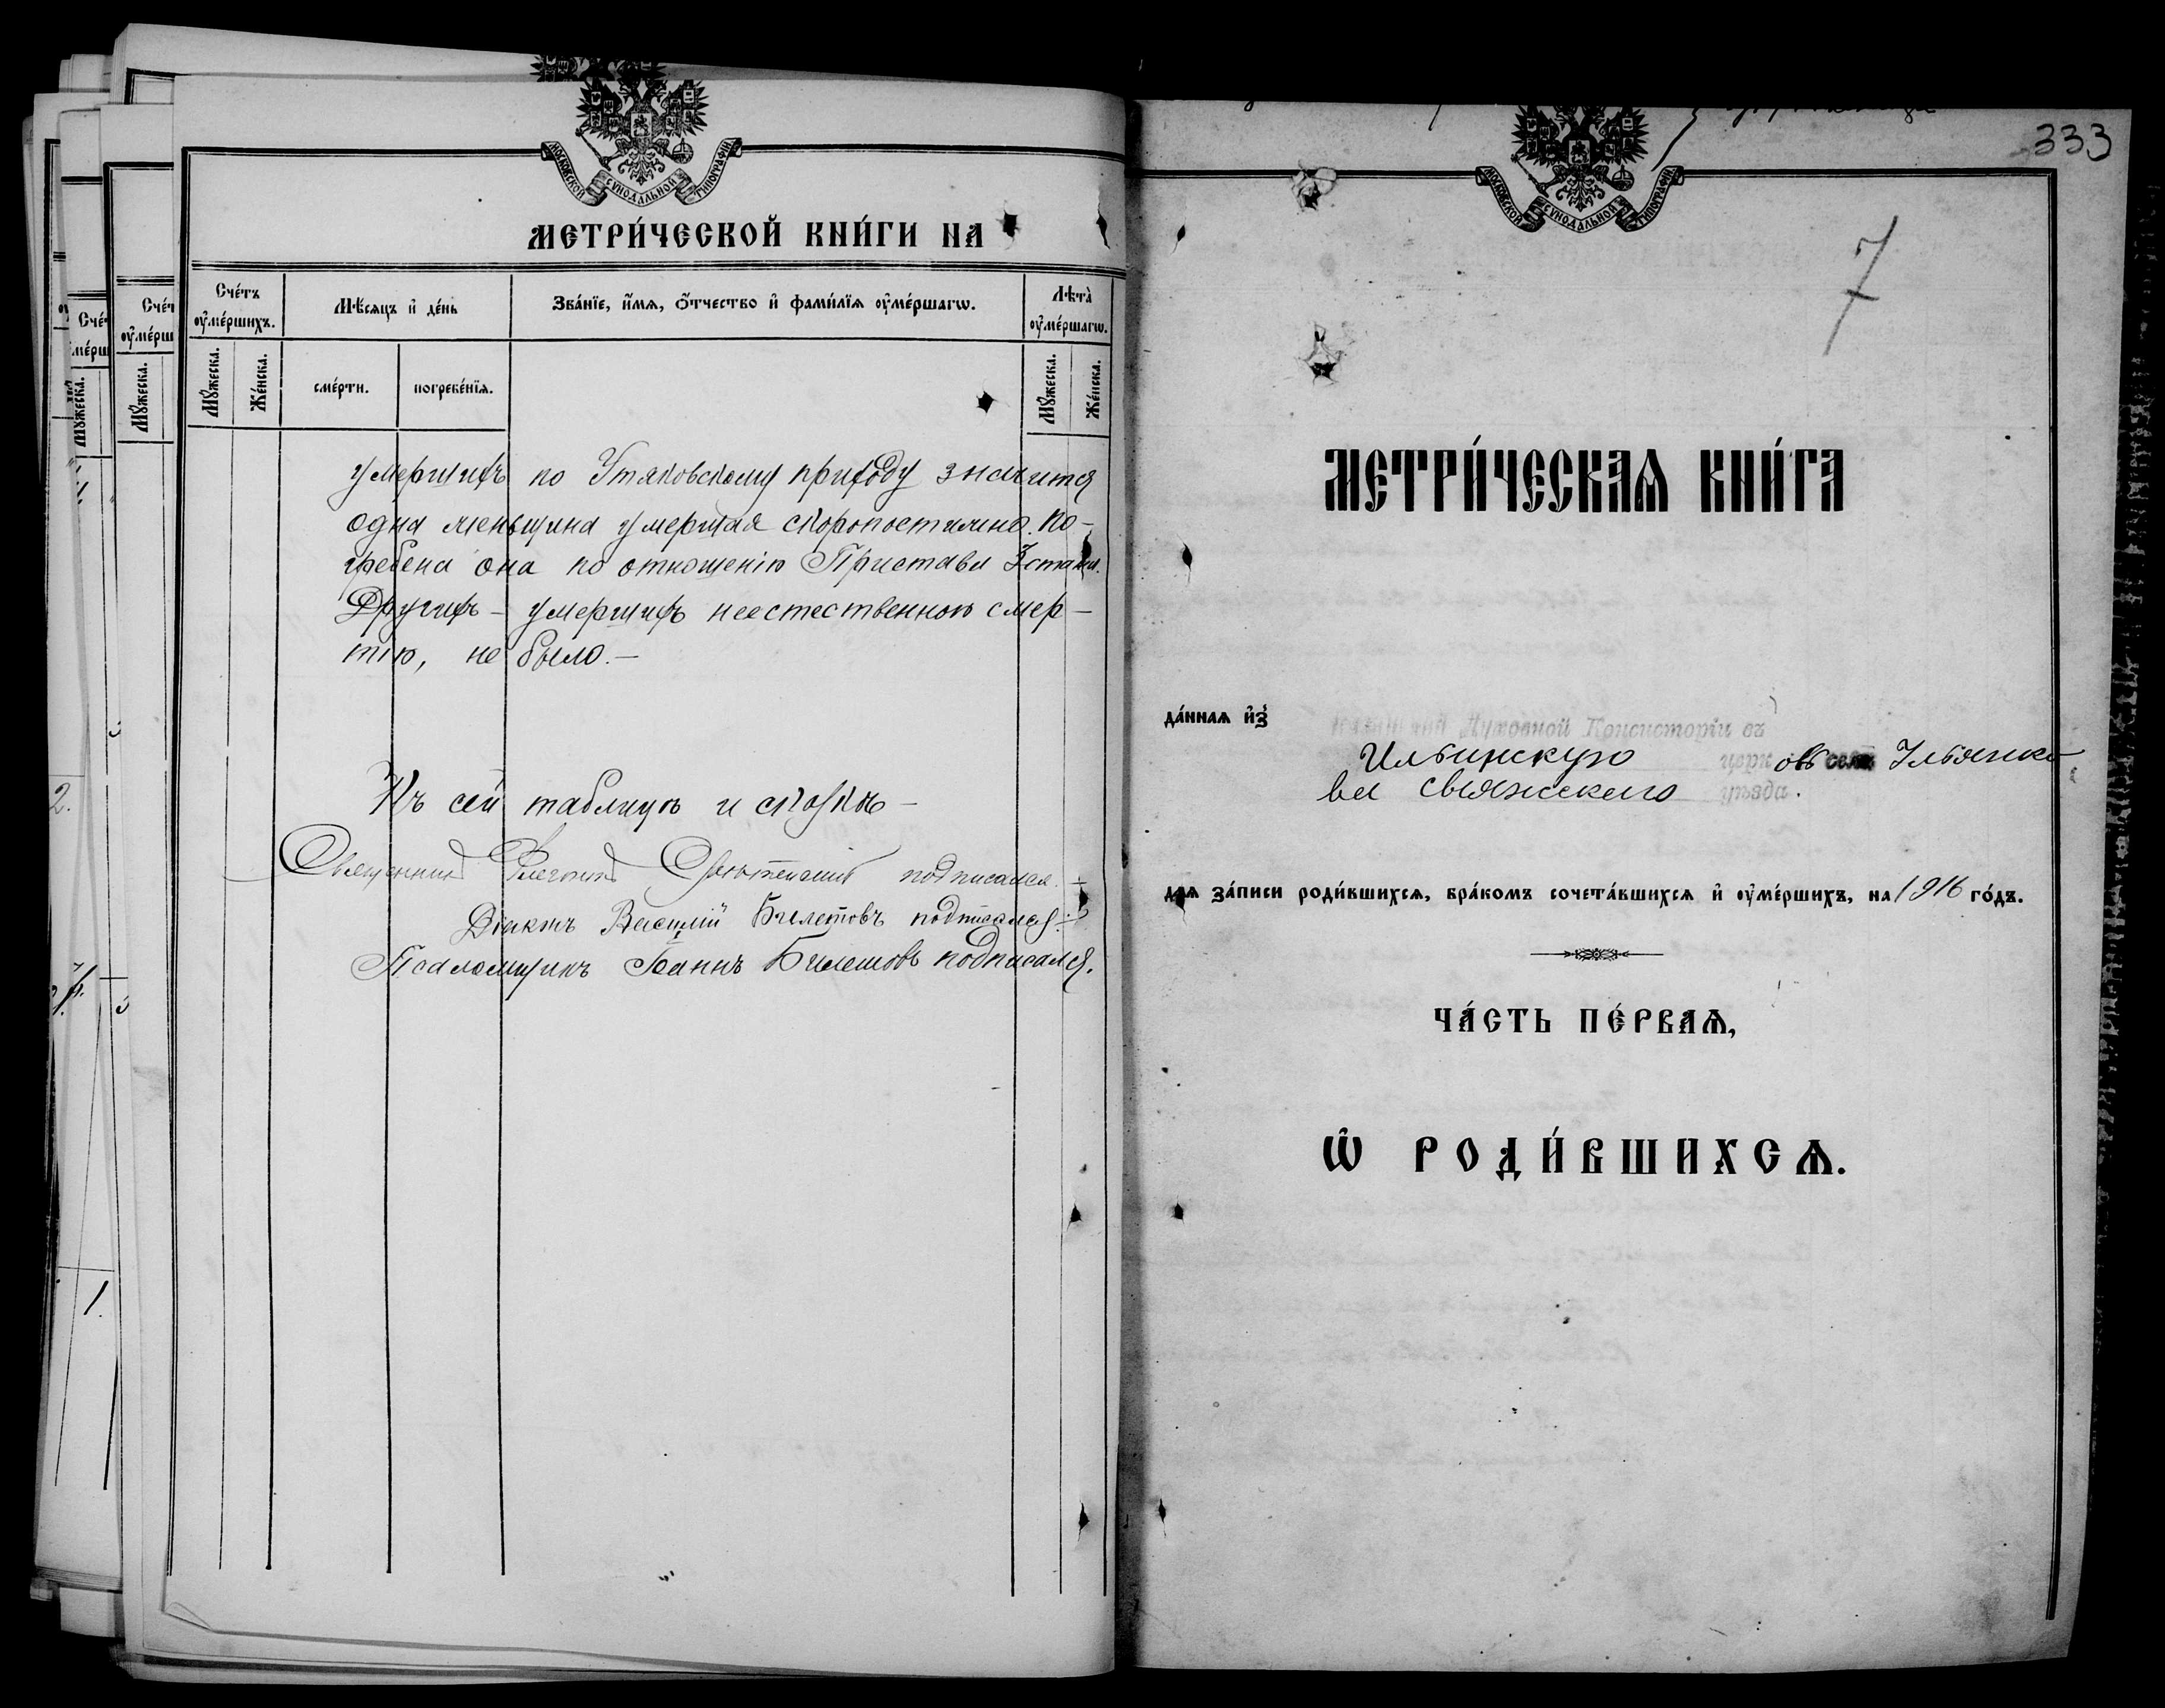 МОСКОВСКОЙ СѴНОДАЛЬНОЙ ТИПОГРАФІИ
МЕТРИ́ЧЕСКОЙ КНИ́ГИ НА
Сче́тъ ᲂу҆ме́ршихъ.
Мѣ́сяцъ и҆ де́нь
Зва́нїе, и҆́мя, ѻ҆́тчество и҆ фами́лїя ᲂу҆ме́ршагѡ.
Лѣта̀ ᲂу҆ме́ршагѡ.
Мꙋ́жеска.
Же́нска.
сме́рти.
погребе́нїѧ.
Мꙋ́жеска.
Же́нска.
умершихъ по Утяковскому приходу значится
одна женьщина умершая скоропостижно. По-
гребена она по отношенію Пристава 3 стана.
Другихъ – умершихъ неестественною смер-
тію, не было. –
Къ сей таблицѣ и сказкѣ –
Священникъ подписался.
Діаконъ Василій Билетовъ подписался.
Псаломщикъ Іоаннъ Билетовъ подписался.
333
МОСКОВСКОЙ СѴНОДАЛЬНОЙ ТИПОГРАФІИ
7
МЕТРИ́ЧЕСКАѦ КНИ́ГА
да́ннаѧ и҆з̾ Духовной Консисторіи въ
Ильинскую церковь села Ульянко-
ва Свіяжскаго уѣзда.
для за́писи роди́вшихсѧ, бра́комъ сочета́вшихсѧ и҆ ᲂу҆ме́ршихъ, на 1916 го́дъ.
ЧА́СТЬ ПЕ́РВАѦ,
Ѡ҆ РОДИ́ВШИХСѦ.